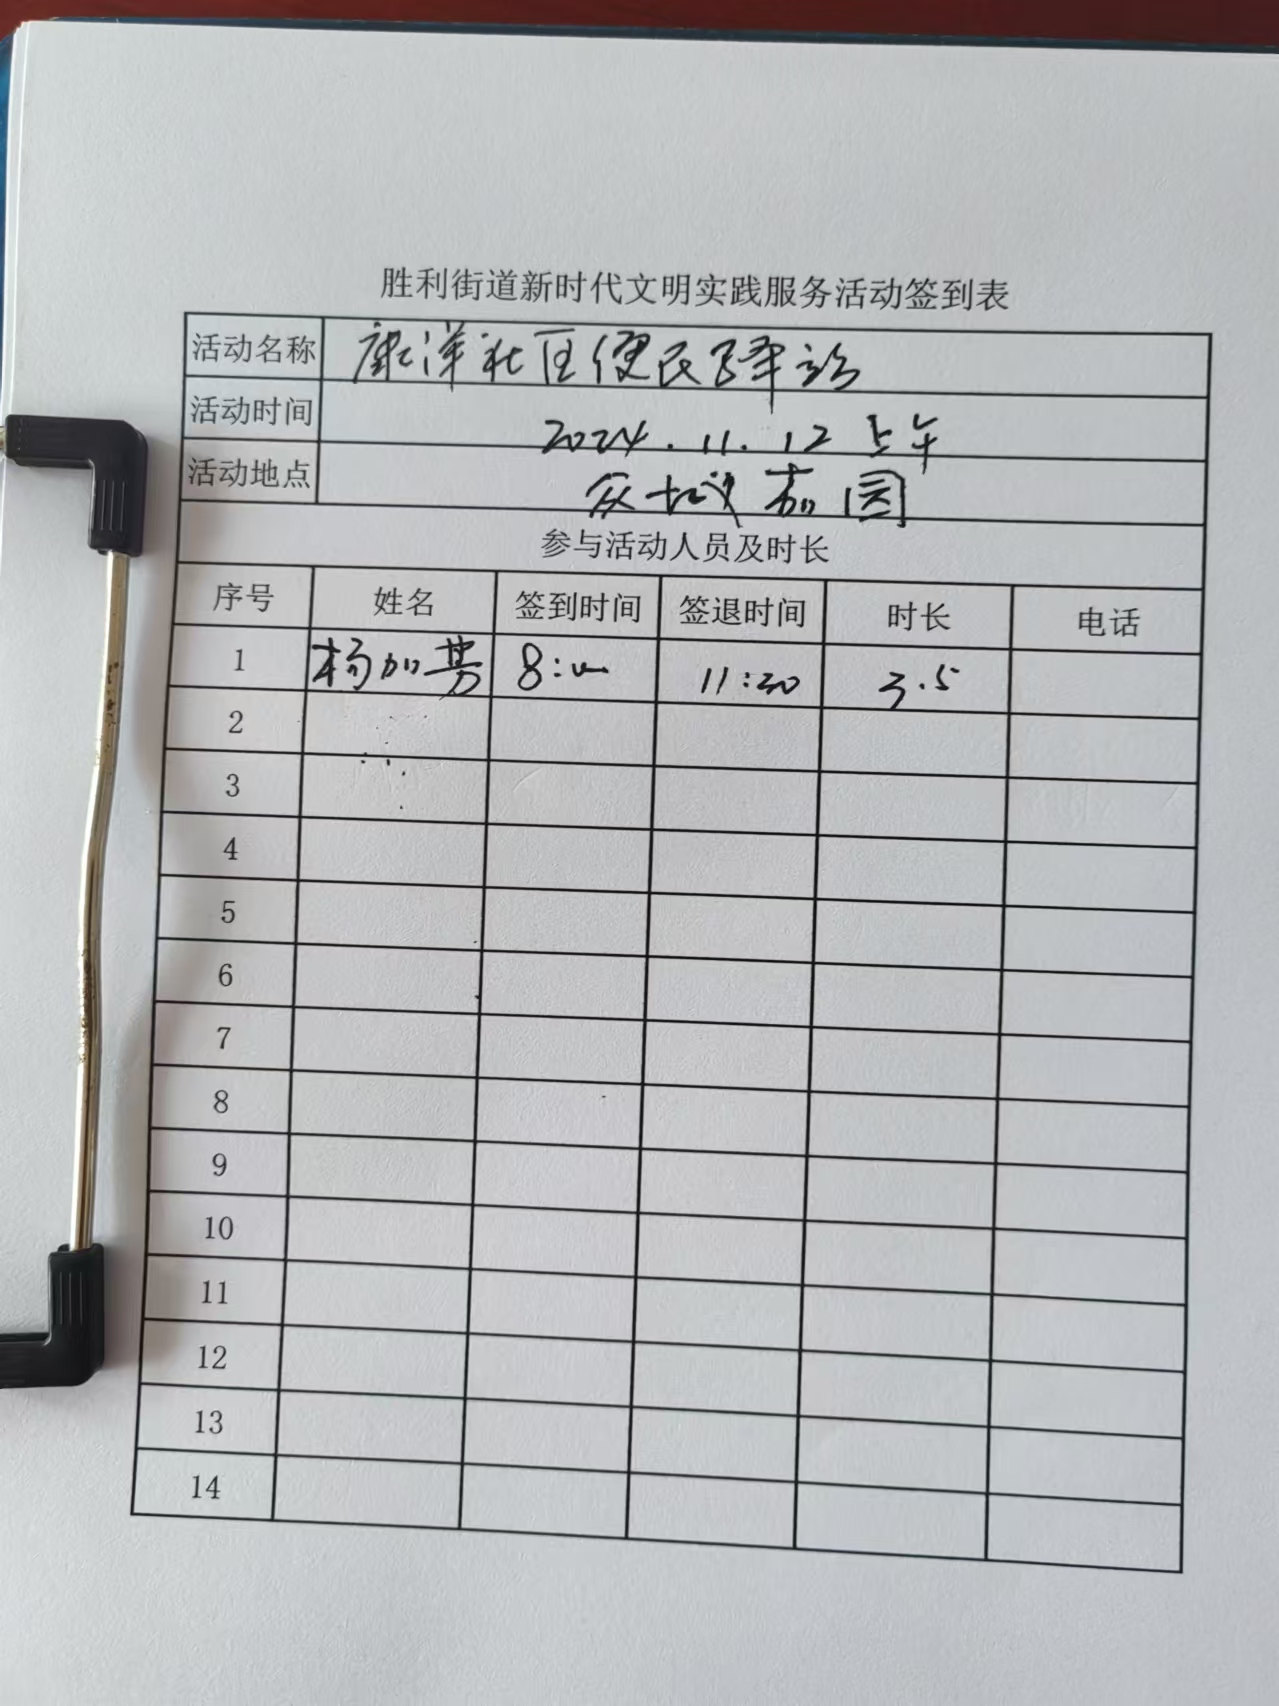 胜利街道新时代文明实践服务活动签到表
活动名称 康洋社区便民驿站
活动时间 2024.11.12 上午
活动地点 众城嘉园
参与活动人员及时长
序号 姓名 签到时间 签退时间 时长 电话
1 杨加 8:00 11:30 3.5
2
3
4
5
6
7
8
9
10
11
12
13
14